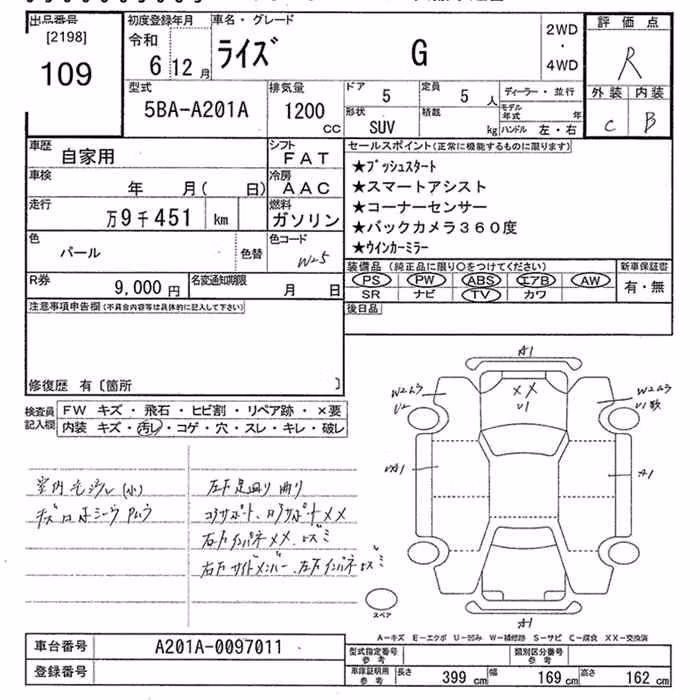 出品番号
[2198]
109
初度登録年月
令和
6 12月
車名・グレード
ライズ G
2WD
・
4WD
評価点
R
外装 内装
C B
型式
5BA-A201A
排気量
1200
CC
ドア
5
定員
5人
形状
SUV
積載
kg
ディーラー・並行
モデル年式 年
ハンドル 左・右
車歴
自家用
シフト
FAT
車検
年 月( 日)
冷房
AAC
走行
万9千451 km
燃料
ガソリン
色
パール
色替
色コード
W25
R券
9,000円
名変通知期限
月 日
セールスポイント(正常に機能するものに限ります)
★プッシュスタート
★スマートアシスト
★コーナーセンサー
★バックカメラ360度
★ウインカーミラー
装備品(純正品に限り○をつけてください)
PS PW ABS エアB AW
SR ナビ TV カワ
新車保証書
有・無
後日品
注意事項申告欄(不具合内容等は具体的に記入して下さい)
修復歴 有〔箇所 〕
検査員記入欄
FW キズ・飛石・ヒビ割・リペア跡・×要
内装 キズ・汚レ・コゲ・穴・スレ・キレ・破レ
A1
XX
U1
W2ムラ
U2
W2ムラ
U1数
A1
A1
スペア
A-キズ E-エクボ U-凹み W-補修跡 S-サビ C-腐食 XX-交換済
車台番号
A201A-0097011
登録番号
型式指定番号
参考
類別区分番号
参考
車庫証明用
参考
長さ 399 cm 幅 169 cm 高さ 162 cm